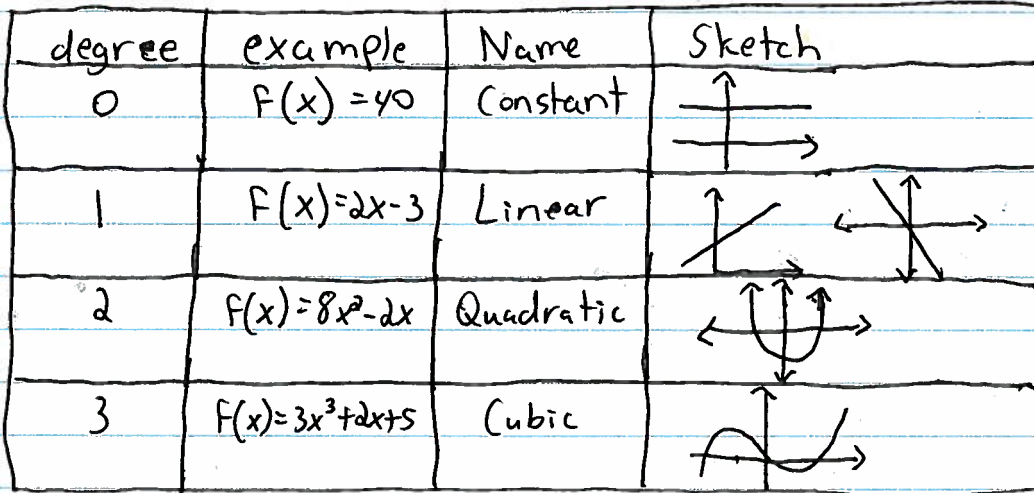 degree example Name Sketch
0 f(x) = 40 Constant
1 f(x) = 2x - 3 Linear
2 f(x) = 8x² - 2x Quadratic
3 f(x) = 3x³ + 2x + 5 Cubic